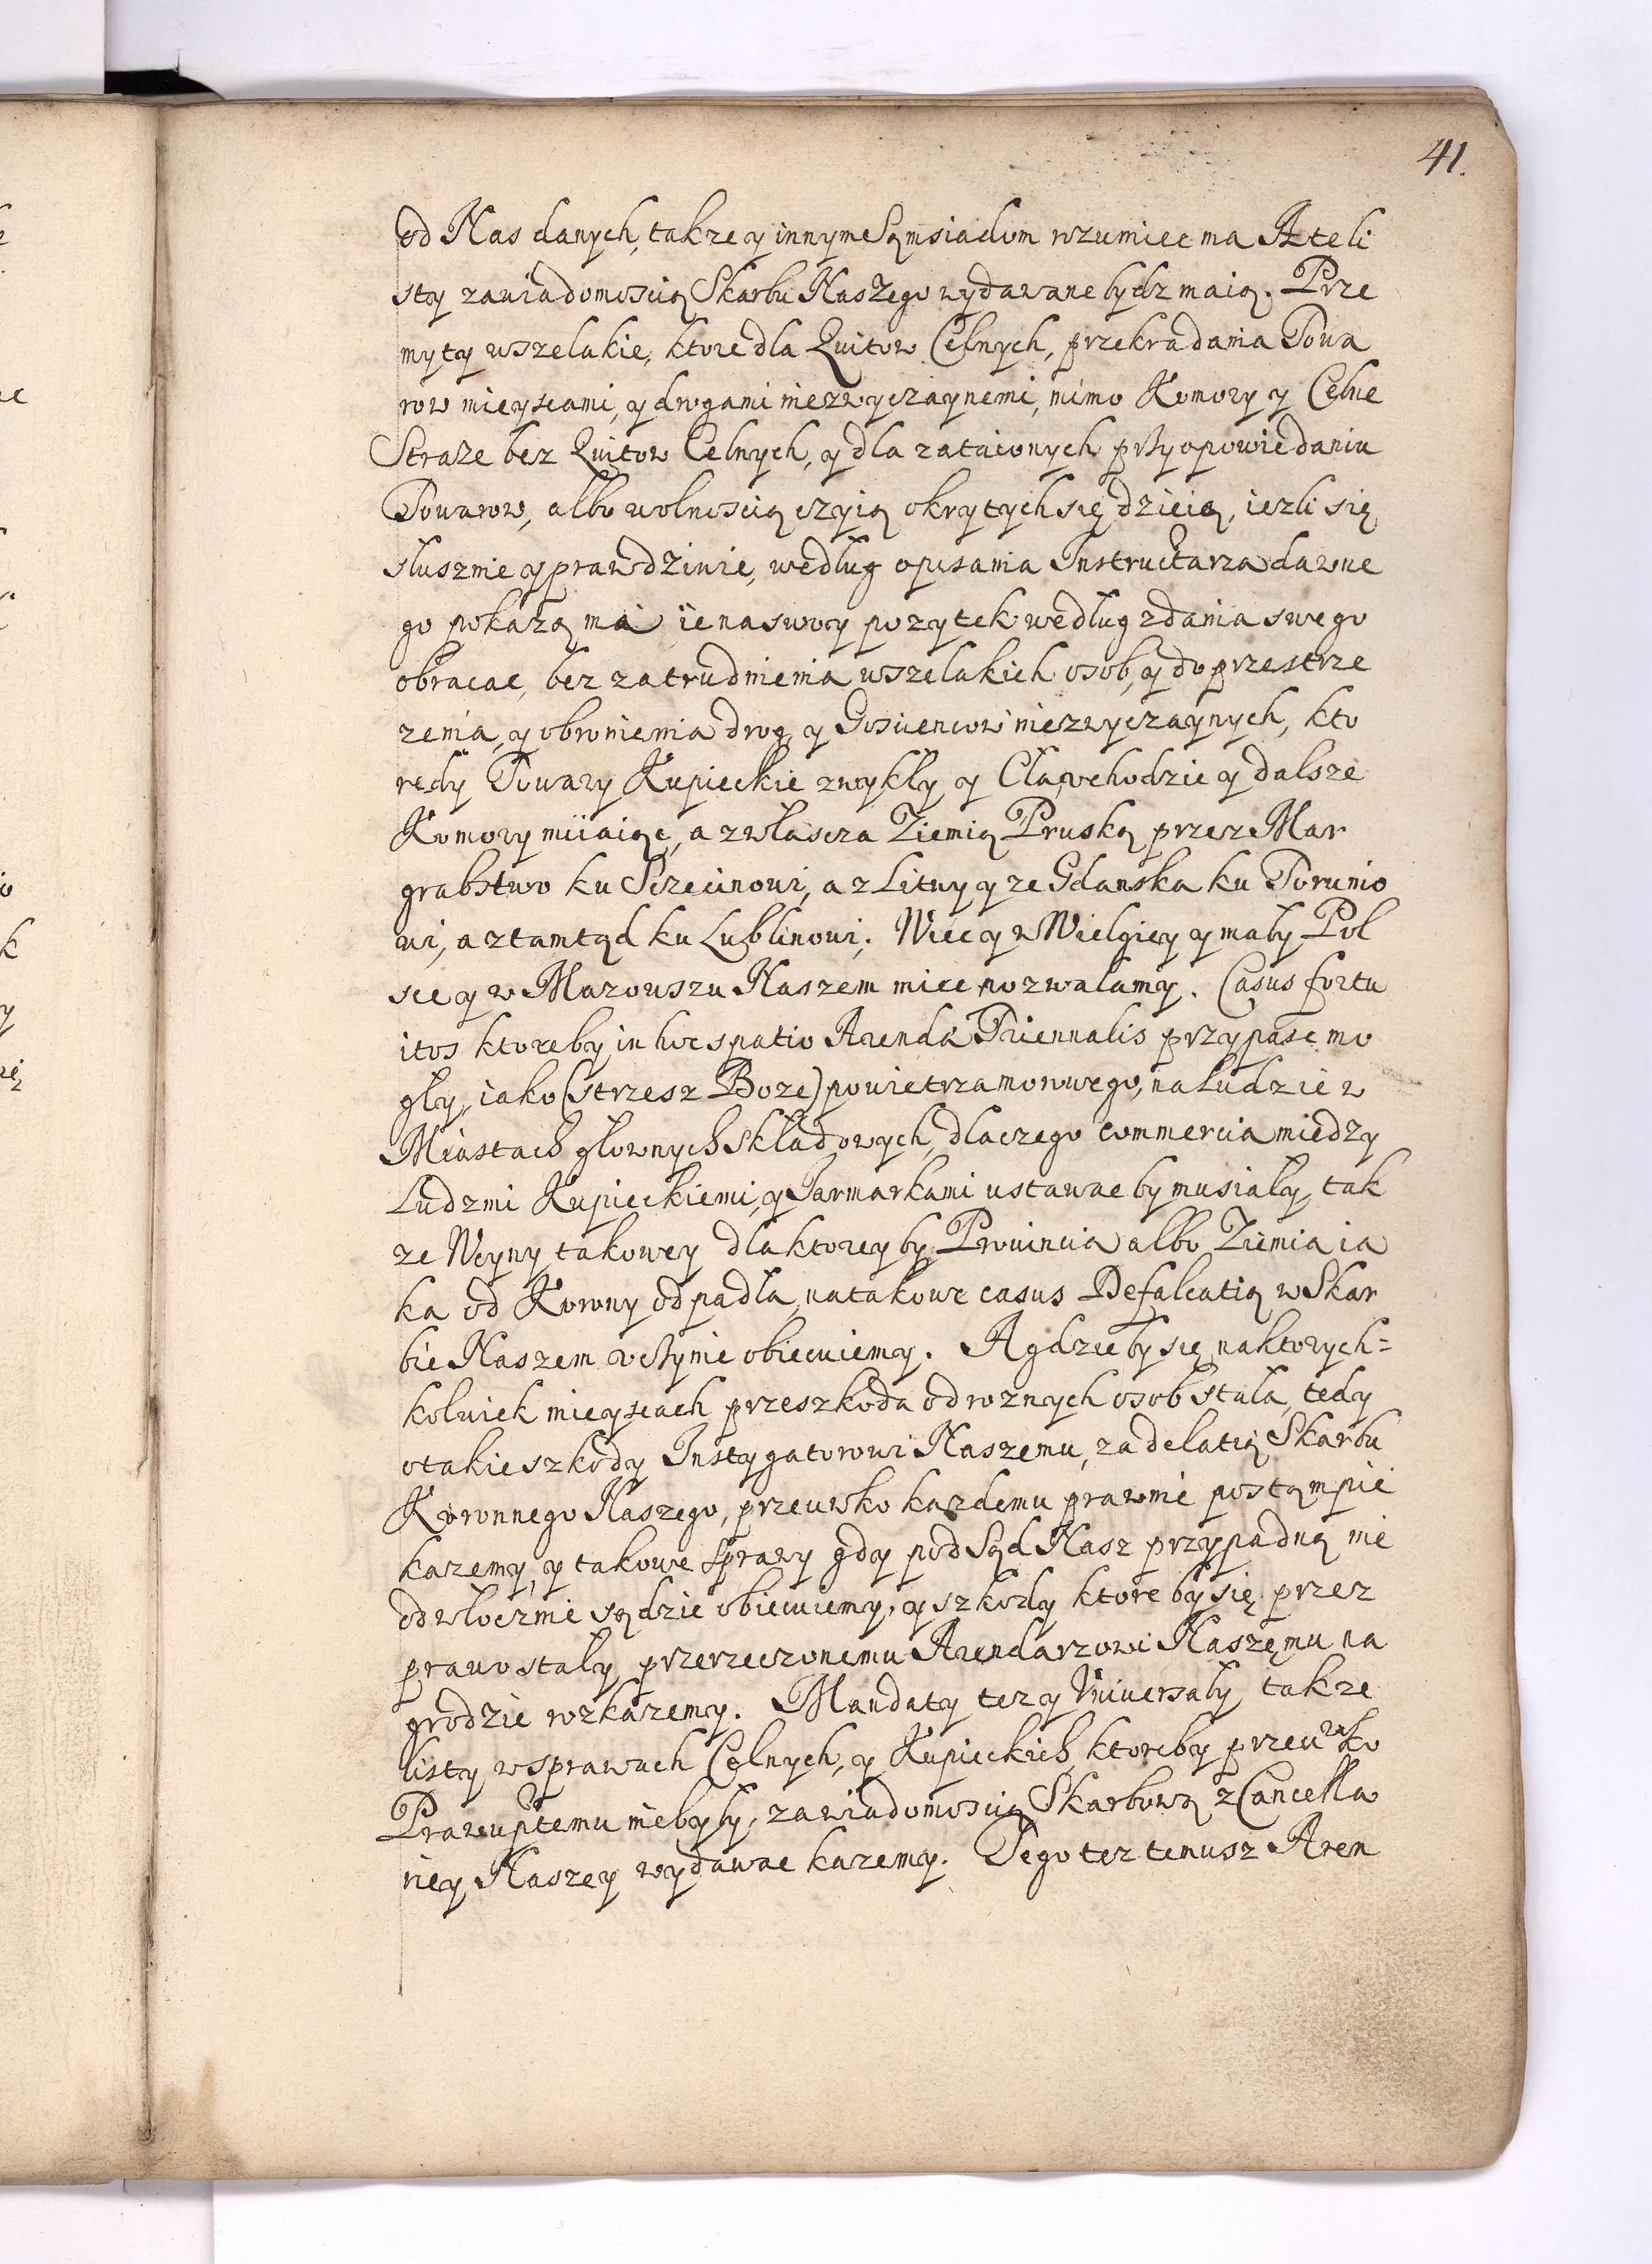 41.
od Nas danych, takze y innym Sąmsiadom rozumiec ma A te li
sty zawiadomoscią Skarbu Naszego wydawane bydz maią. Prze
myty wszelakie, ktore dla Quitow Celnych, przekradania Towa
row mieyscami, y drogami niezwyczaynemi, mimo Komory y Celne
Straze bez Quitow Celnych, y dla zataionych przy opowiedaniu
Towarow, albo wolnoscią czyią okrytych się dzieią, iezli się
słusznie y prawdziwie, według opisania Instructarza dawne
go pokazą ma ie na swoy pozytek według zdania swego
obracac, bez zatrudnienia wszelakich osob, y do przestrze
zenia, y obronienia drog, y Goscencow niezwyczaynych, kto
redy Towary Kupieckie zwykły y Cła uchodzic y dalsze
Komory miiaiąc, a zwłascza Ziemią Pruską przez Mar
grabstwo ku Sczecinowi, a z Litwy y ze Gdanska ku Torunio
wi, a ztamtąd ku Lublinowi; Wiec y w Wielgiey y mały Pol
sce y w Mazouszu Naszem miec pozwalamy. Casus fortu
itos ktoreby in hoc spatio Arenda Triennalis przypasc mo
gły, iako (strzesz Boze) powietrza morowego, na Ludzie w
Miastach głownych Składowych, dlaczego commercia miedzy
Ludzmi Kupieckiemi, y Jarmarkami ustawac by musiały, tak
ze Woyny takowey dla ktorey by Prouincia albo Ziemia ia
ka od Korony odpadła, na takowe casus Defalcatią w Skar
bie Naszem uczynic obiecuiemy. A gdzie by się na ktorych=
kolwiek mieyscach przeszkoda od roznych osob stała, tedy
o takie szkody Instygatorowi Naszemu, za delatią Skarbu
Koronnego Naszego, przeciwko kazdemu prawnie postąmpic
kazemy, y takowe sprawy gdy pod Sąd Nasz przypadną nie
odwłocznie sądzic obiecuiemy, y szkody ktore by się przez
prawo stały, przerzeczonemu Arendarzowi Naszemu na
grodzic rozkazemy. Mandaty tez y Uniuersały takze
listy w sprawach Celnych, y Kupieckich, ktoreby przeciwko
Prawu ptemu nie były, zawiadomoscią Skarbową z Cancella
riey Naszey wydawac kazemy. Tego tez tenusz Aren